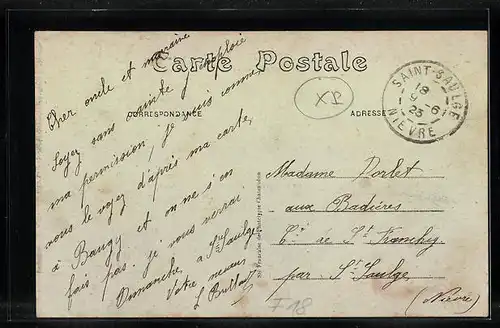 Carte Postale
CORRESPONDANCE
ADRESSE
Cher oncle et marraine
Soyez sans crainte j'emploie
ma permission, je suis comme
vous le voyez d'après ma carte,
à Baugy et on ne s'en
fait pas. je vous verrai
Dimanche, à St Saulge
Votre neveu
L
SAINT-SAULGE
18
9-6
23
NIÈVRE
Madame Dorlet
aux Badières
Cne de St Franchy
par St Saulge
(Nièvre)
F 18